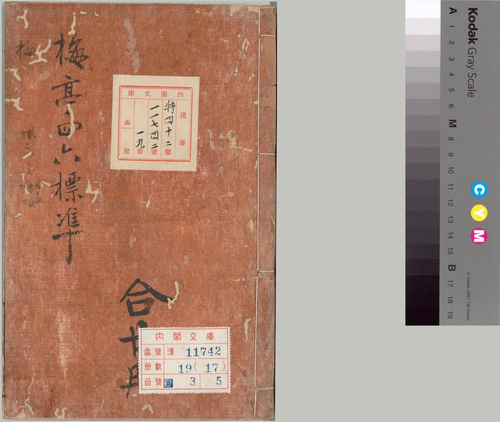 梅亭四六標準
梅
内閣文庫
漢書
特四十二類
一一七四二號
一九
合十冊
内閣文庫
番號 漢 11742
冊數 19(17)
函號 3 5
Kodak Gray Scale
A 1 2 3 4 5 6 M 8 9 10 11 12 13 14 15 B 17 18 19
C Y M